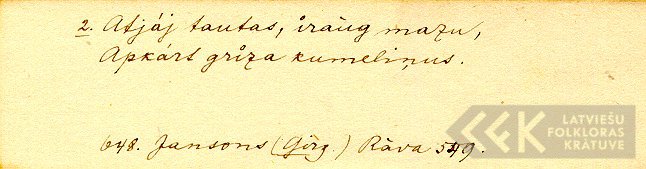 2. Atjāj tautas, īrāug mazu,
Apkārt grīza kumeliņus.
648. Jansons (Görg.) Rāva 549.
LATVIEŠU
FOLKLORAS
KRĀTUVE